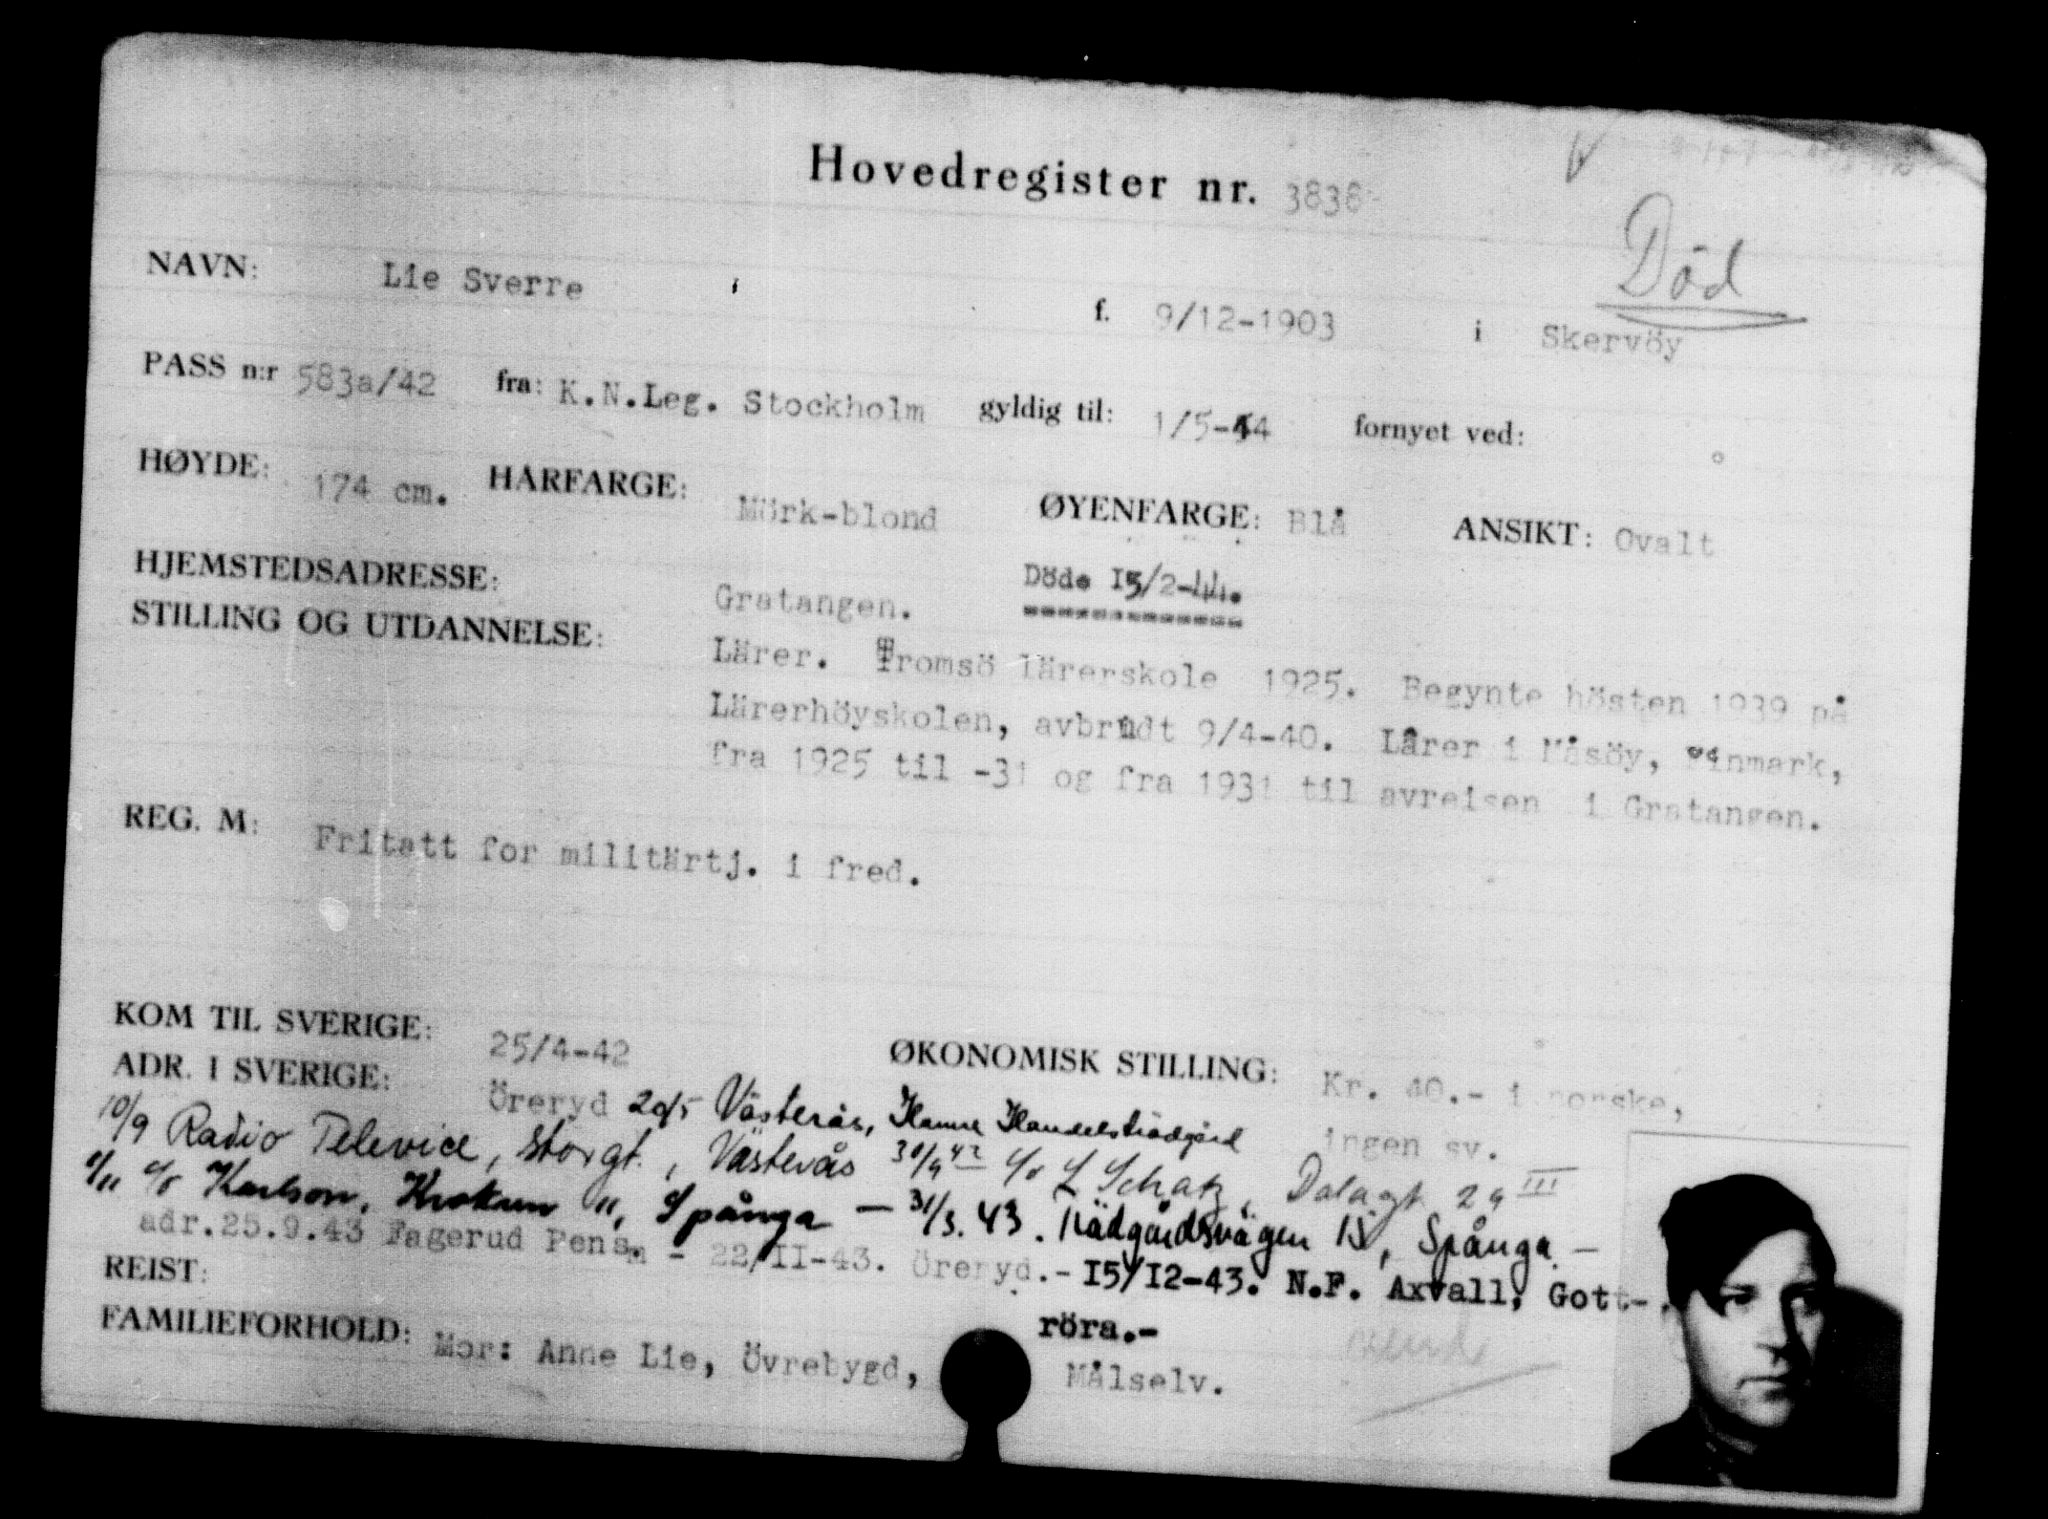 Hovedregister nr. 3838
Död
NAVN: Lie Sverre f. 9/12-1903 i Skervöy
PASS n:r 583a/42 fra: K.N.Leg. Stockholm gyldig til: 1/5-44 fornyet ved:
HØYDE: 174 cm. HÅRFARGE: Mörk-blond ØYENFARGE: Blå ANSIKT: Ovalt
HJEMSTEDSADRESSE: Gratangen. Död. 15/2-44.
STILLING OG UTDANNELSE: Lärer. Tromsö lärerskole 1925. Begynte hösten 1939 på
Lärerhöyskolen, avbrudt 9/4-40. Lärer i Måsöy, Finmark,
fra 1925 til -31 og fra 1931 til avreisen i Gratangen.
REG. M: Fritatt for militärtj. i fred.
KOM TIL SVERIGE: 25/4-42 ØKONOMISK STILLING: Kr. 40.- i norske,
ingen sv.
ADR. I SVERIGE: Öreryd 20/5 Västerås, Hamre Handelsträdgård
10/9 Radio Televice, Storgt., Västerås 30/9 42 c/o L Schatz, Dalagt 29 III
1/11 c/o Karlson, Krokum 11, Spånga — 31/3. 43. Trädgårdsvägen 15, Spånga —
adr. 25.9.43 Fagerud Pens. - 22/II-43. Öreryd.- I5/I2-43. N.F. Axvall, Gott-
röra.-
REIST:
FAMILIEFORHOLD: Mor: Anne Lie, Övrebygd, Målselv.